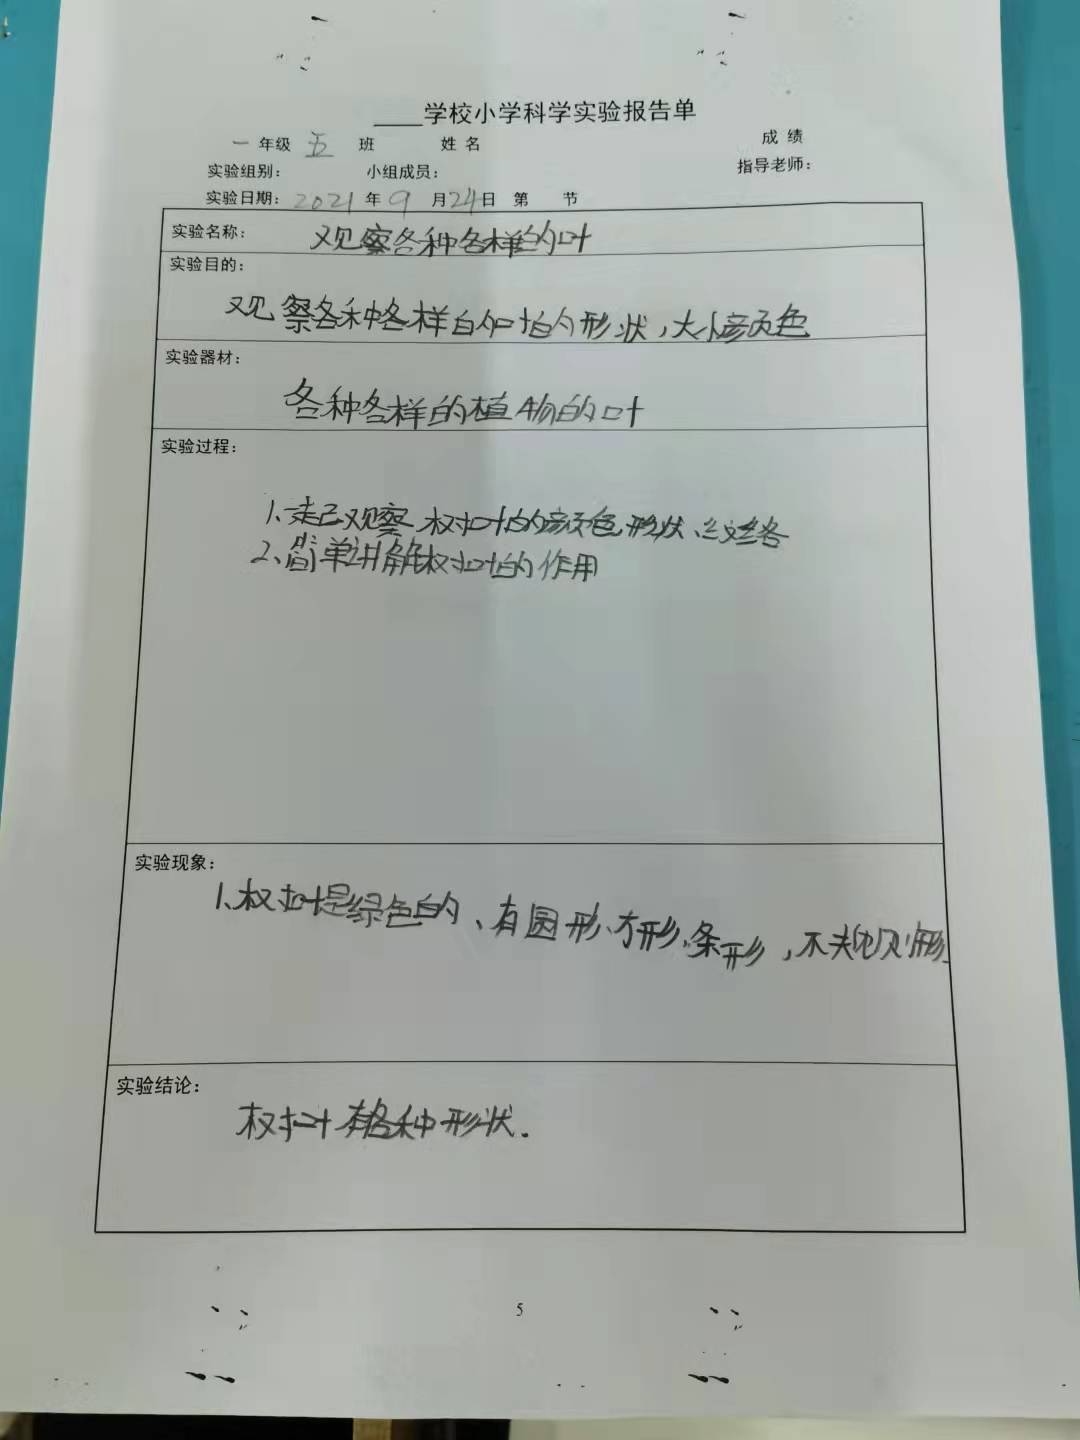 ____学校小学科学实验报告单
一 年级 五 班 姓 名 成 绩
实验组别： 小组成员： 指导老师：
实验日期：2021 年 9 月 24 日 第 节
实验名称： 观察各种各样的叶
实验目的：
观察各种各样的叶的形状，大小颜色
实验器材：
各种各样的植物的叶
实验过程：
1、 观察 叶的颜色形状、
2、简单讲解 叶的作用
实验现象：
1、 叶是绿色的、有圆形、方形、条形，不规则形
实验结论：
叶有各种形状.
5